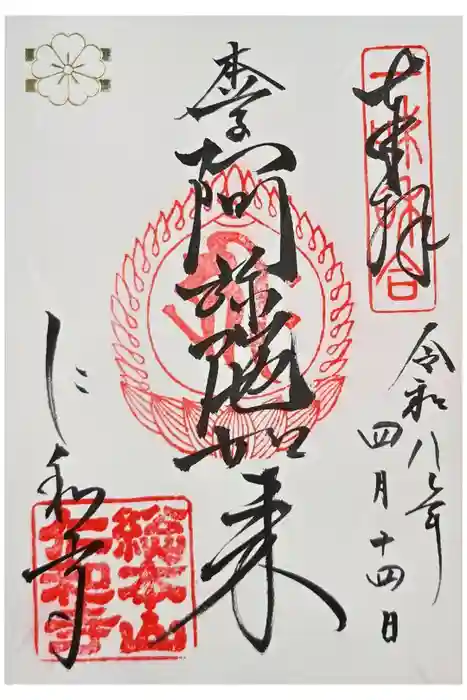 奉拝
一味和合
令和八年
四月十四日
本尊阿弥陀如来
仁和寺
総本山
仁和寺